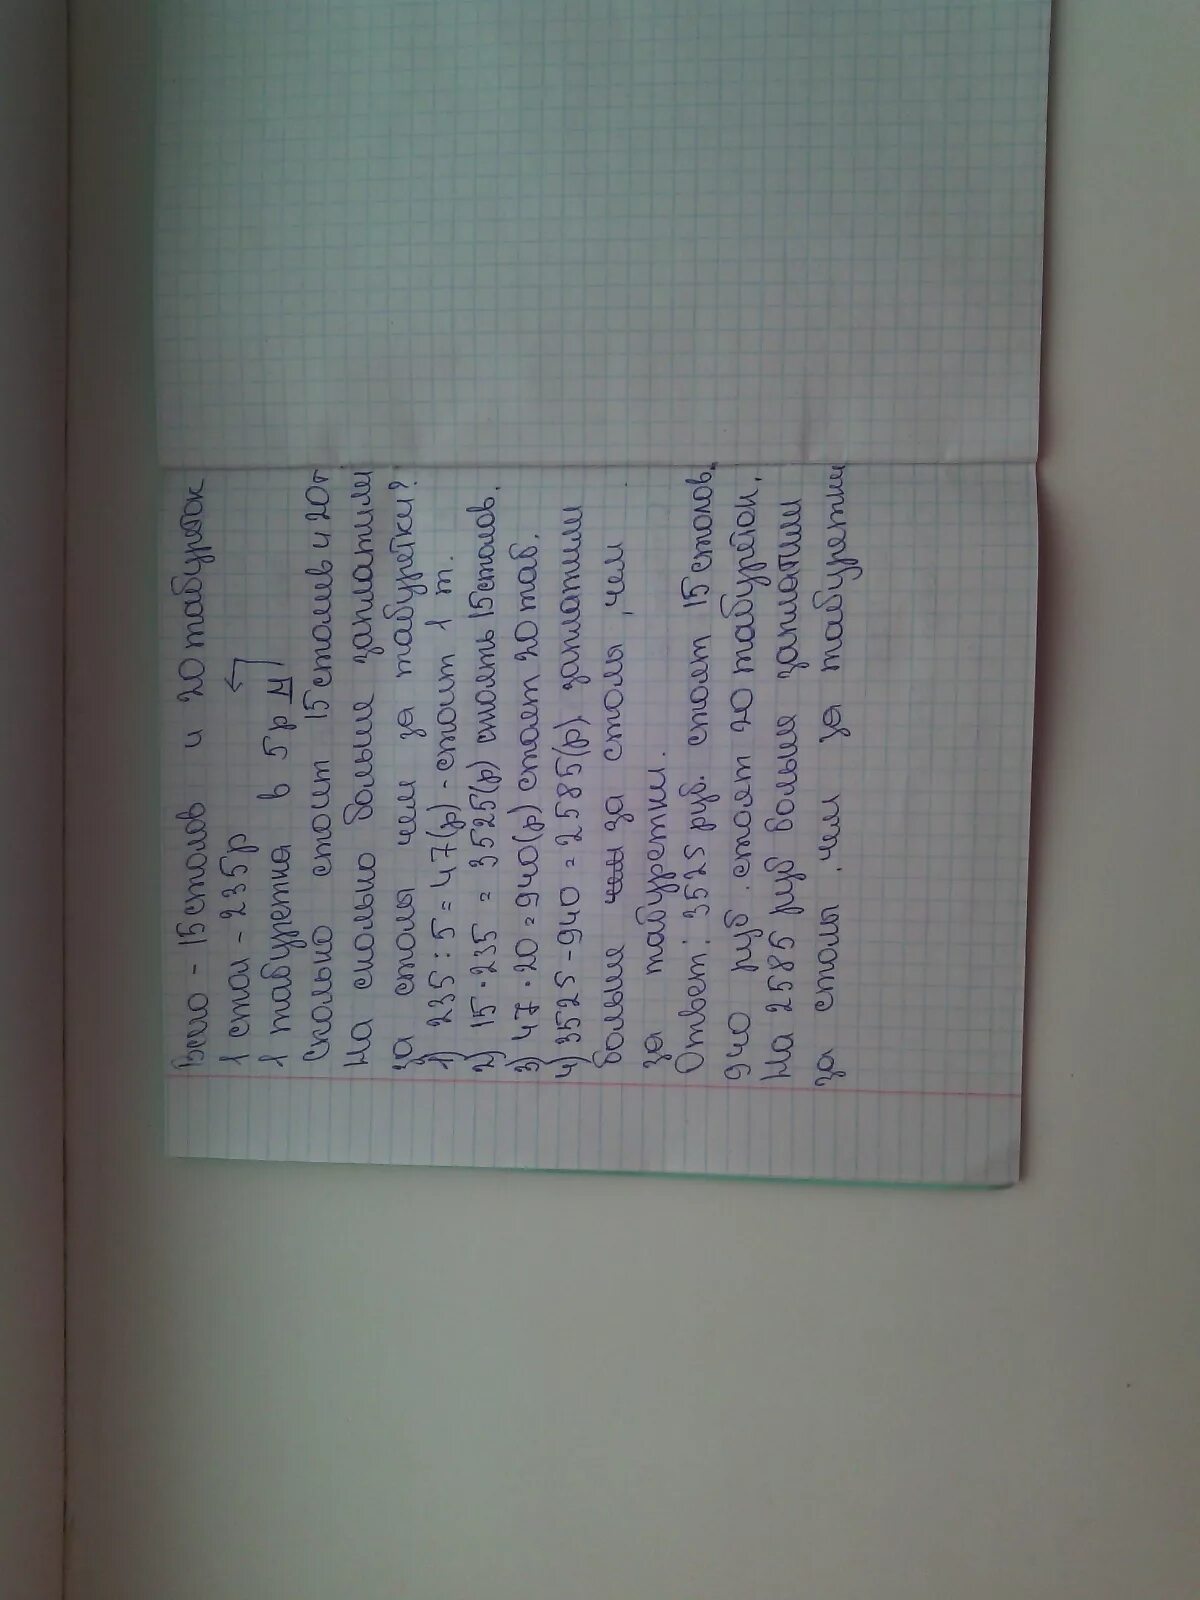 Всего - 15 столов и 20 табуреток
1 стол - 235р
1 табуретка в 5р М
Сколько стоит 15 столов и 20т
На сколько больше заплатили
за столы чем за табуретки?
1) 235 : 5 = 47(р) - стоит 1 т.
2) 15 · 235 = 3525(р) стоять 15 столов.
3) 47 · 20 = 940(р) стоят 20 таб.
4) 3525 - 940 = 2585(р) заплатили
больше за столы, чем
за табуретки.
Ответ: 3525 руб. стоят 15 столов.
940 руб. стоят 20 табуреток.
На 2585 руб больше заплатили
за столы, чем за табуретки